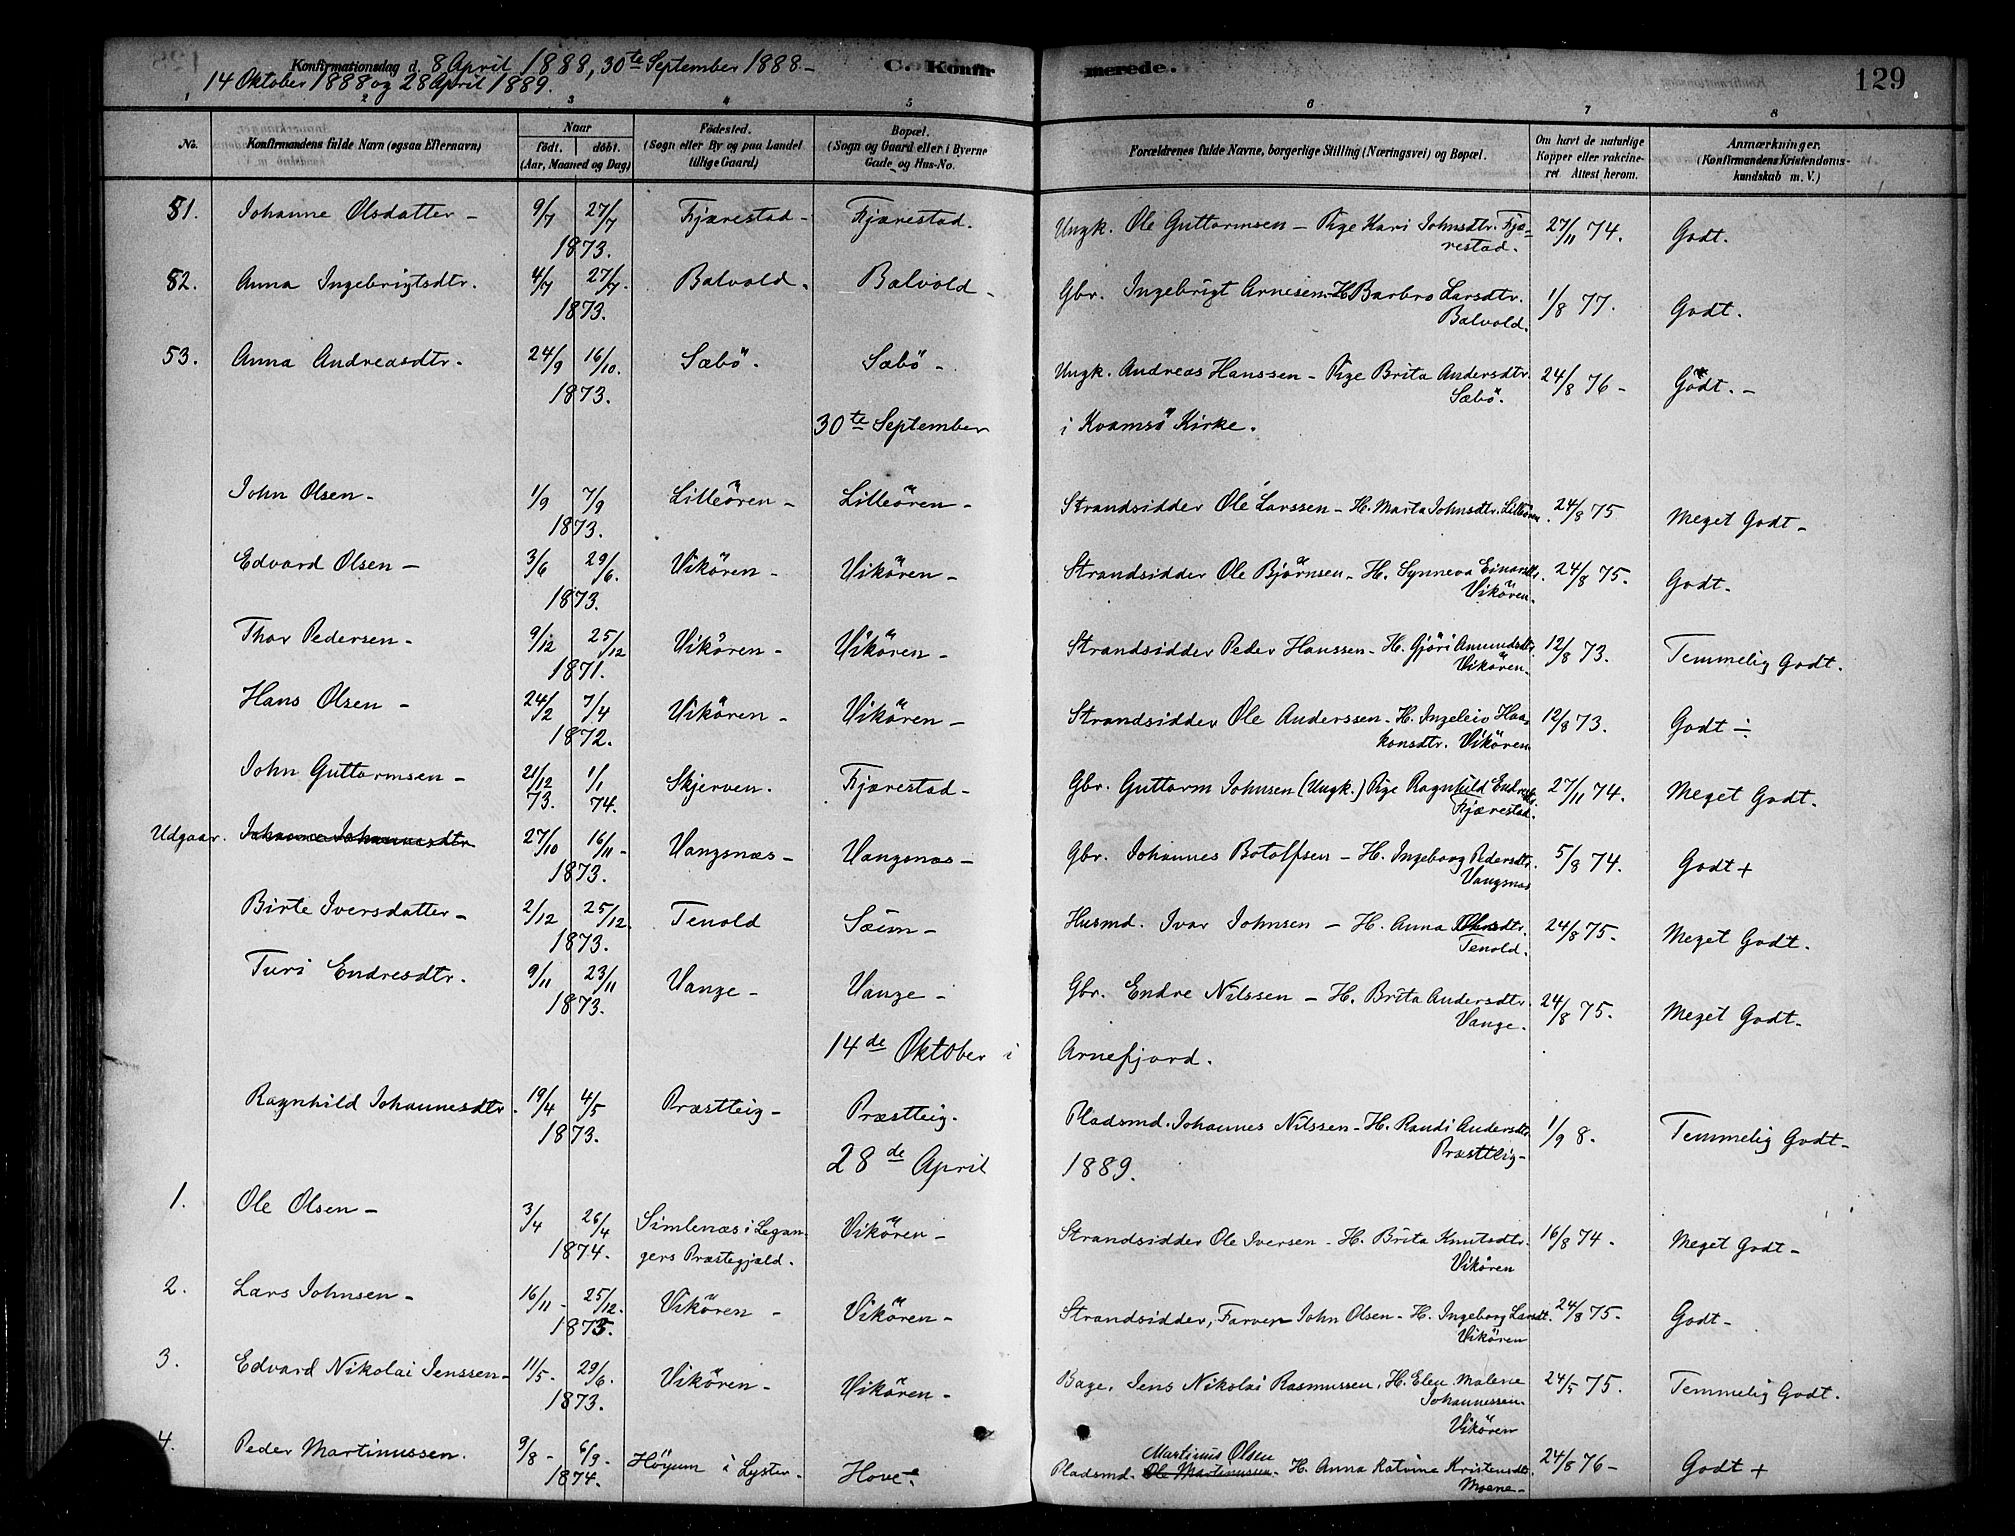 Konfirmationsdag d. 8 April 1888, 30te September 1888 - C. Konfirmerede. 129
14 Oktober 1888 og 28 April 1889.
1 2 3 4 5 6 7 8
No. Konfirmandens fulde Navn (ogsaa Efternavn) Naar født. døbt. (Aar, Maaned og Dag) Fødested. (Sogn eller By og paa Landet tillige Gaard) Bopæl. (Sogn og Gaard eller i Byerne Gade og Hus-No. Forældrenes fulde Navne, borgerlige Stilling (Næringsvei) og Bopæl. Om havt de naturlige Kopper eller vakcineret Attest herom. Anmærkninger. (Konfirmandens Kristendomskundskab m. V.)
51. Johanne Olsdatter - 9/7 27/7 1873. Fjærestad - Fjærestad. Ungk. Ole Guttormsen - Pige Kari Johnsdtr. Fjærestad. 27/11 74. Godt.
52. Anna Ingebrigtsdtr. 4/7 27/7. 1873. Bolvold. Bolvold - Gbr. Ingebrigt Arnesen - H. Barbro Larsdtr. Bolvold. 1/8 77. Godt.
53. Anna Andreasdtr. 24/9 16/10. 1873. Sæbö. Sæbö - Ungk. Andreas Hanssen - Pige Brita Andersdtr. Sæbö. 24/8 76 - Godt. -
30te September i Kvamsö Kirke.
John Olsen - 1/9 7/9 1873. Lilleören - Lilleören - Strandsidder Ole Larssen - H. Marta Johnsdtr. Lilleören. 24/8 75 Meget Godt -
Edvard Olsen - 3/6 29/6. 1873. Vikören - Vikören - Strandsidder Ole Björnsen - H. Synneva Einarsdtr. Vikören - 24/8 75. Godt -
Thor Pedersen - 9/12 25/12 1871. Vikören - Vikören - Strandsidder Peder Hanssen - H. Gjöri Amundsdtr. Vikören - 12/8 73. Temmelig Godt.
Hans Olsen - 24/2 7/4 1872. Vikören - Vikören - Strandsidder Ole Anderssen - H. Ingeleiv Haakonsdtr. Vikören 12/8 73. Godt ÷
John Guttormsen - 21/12 73. 1/1 74. Skjerven. Fjærestad - Gbr. Guttorm Johnsen (Ungk.) Pige Ragnhild Endresdtr. Fjærestad. 27/11 74. Meget Godt.
Udgaar. Johanne Johannesdtr 27/10 16/11 - 1873. Vangsnæs - Vangsnæs - Gbr. Johannes Botolfsen - H. Ingeborg Pedersdtr. Vangsnæs 5/8 74. Godt +
Birte Iversdatter - 2/12 25/12. 1873. Tenold Sæim - Husmd. Ivar Johnsen - H. Anna Olsdtr. Tenold. 24/8 75. Meget Godt.
Turi Endresdtr. 9/11 23/11 1873. Vange - Vange - Gbr. Endre Nilssen - H. Brita Andersdtr. Vange. 24/8 75. Meget Godt.
14de Oktober i Arnefjord.
Ragnhild Johannesdtr. 19/4 4/5 1873. Præstteig - Præstteig. Pladsmd. Johannes Nilssen - H. Randi Andersdtr. Præstteig - 1/9 8. Temmelig Godt -
28de April 1889.
1. Ole Olsen - 3/4 26/4 1874. Simlenæs i Legangers Præstegjæld. Vikören - Strandsidder Ole Iversen - H. Brita Knutsdtr. Vikören 16/8 74 - Meget Godt -
2. Lars Johnsen - 16/11 - 25/12. 1873. Vikören - Vikören - Strandsidder, Farver John Olsen - H. Ingeborg Larsdt. Vikören 24/8 75 - Godt -
3. Edvard Nikolai Jenssen - 11/5 - 29/6. 1873. Vikören - Vikören - Bage. Jens Nikolai Rasmussen. H. Elen Malene Johannessen. Vikören 24/5 75. Temmelig Godt.
4. Peder Martinussen. 9/8 - 6/9 - 1874. Höyum i Lyster - Hove. Pladsmd. Ole Martinussen - Martinus Olsen H. Anna Katrine Kristensdtr. Moene - 24/8 76 - Godt +